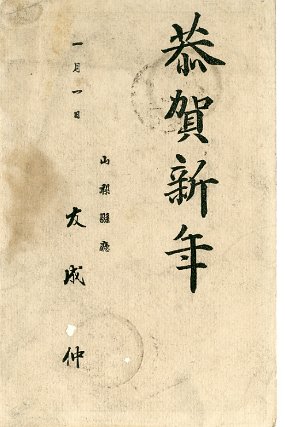 恭賀新年
一月一日
山梨縣廳
友成仲